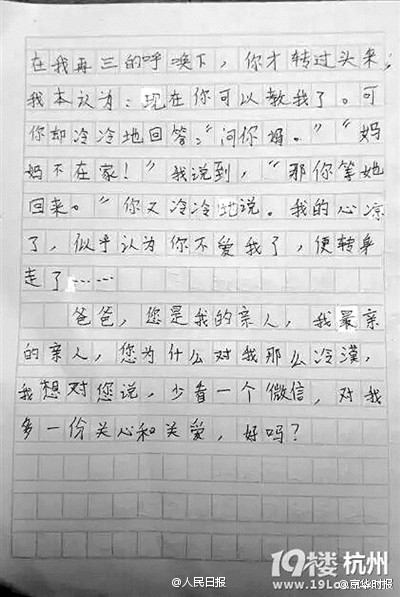 在我再三的呼唤下，你才转过头来，
我本认为：现在你可以教我了。可
你却冷冷地回答："问你妈。""妈
妈不在家！"我说到，"那你等她
回来。"你又冷冷地说。我的心凉
了，似乎认为你不爱我了，便转身
走了……
爸爸，您是我的亲人，我最亲
的亲人，您为什么对我那么冷漠，
我想对您说，少看一个微信，对我
多一份关心和关爱，好吗？
19楼 杭州
www.19lou.
@人民日报
@京华时报